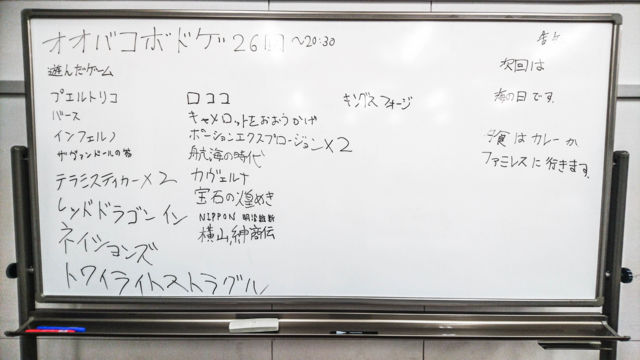 オオバコボドゲ26回 〜20:30
遊んだゲーム
プエルトリコ
バース
インフェルノ
サヴァンドールの笏
テラミスティカー×2
レッドドラゴンイン
ネイションズ
トワイライトストラグル
ロココ
キャメロットをおおうかげ
ポーションエクスプロージョン×2
航海の時代
カヴェルナ
宝石の煌めき
NIPPON 明治維新
横山紳商伝
キングスフォージ
次回は
海の日です。
夕食はカレーか
ファミレスに行きます。